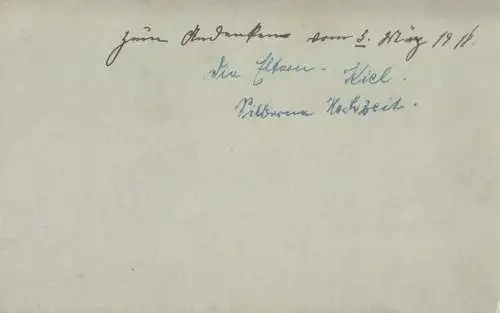 Zum Andenken vom 3. März 1918.
Die Eltern. Kiel.
Silberne Hochzeit.